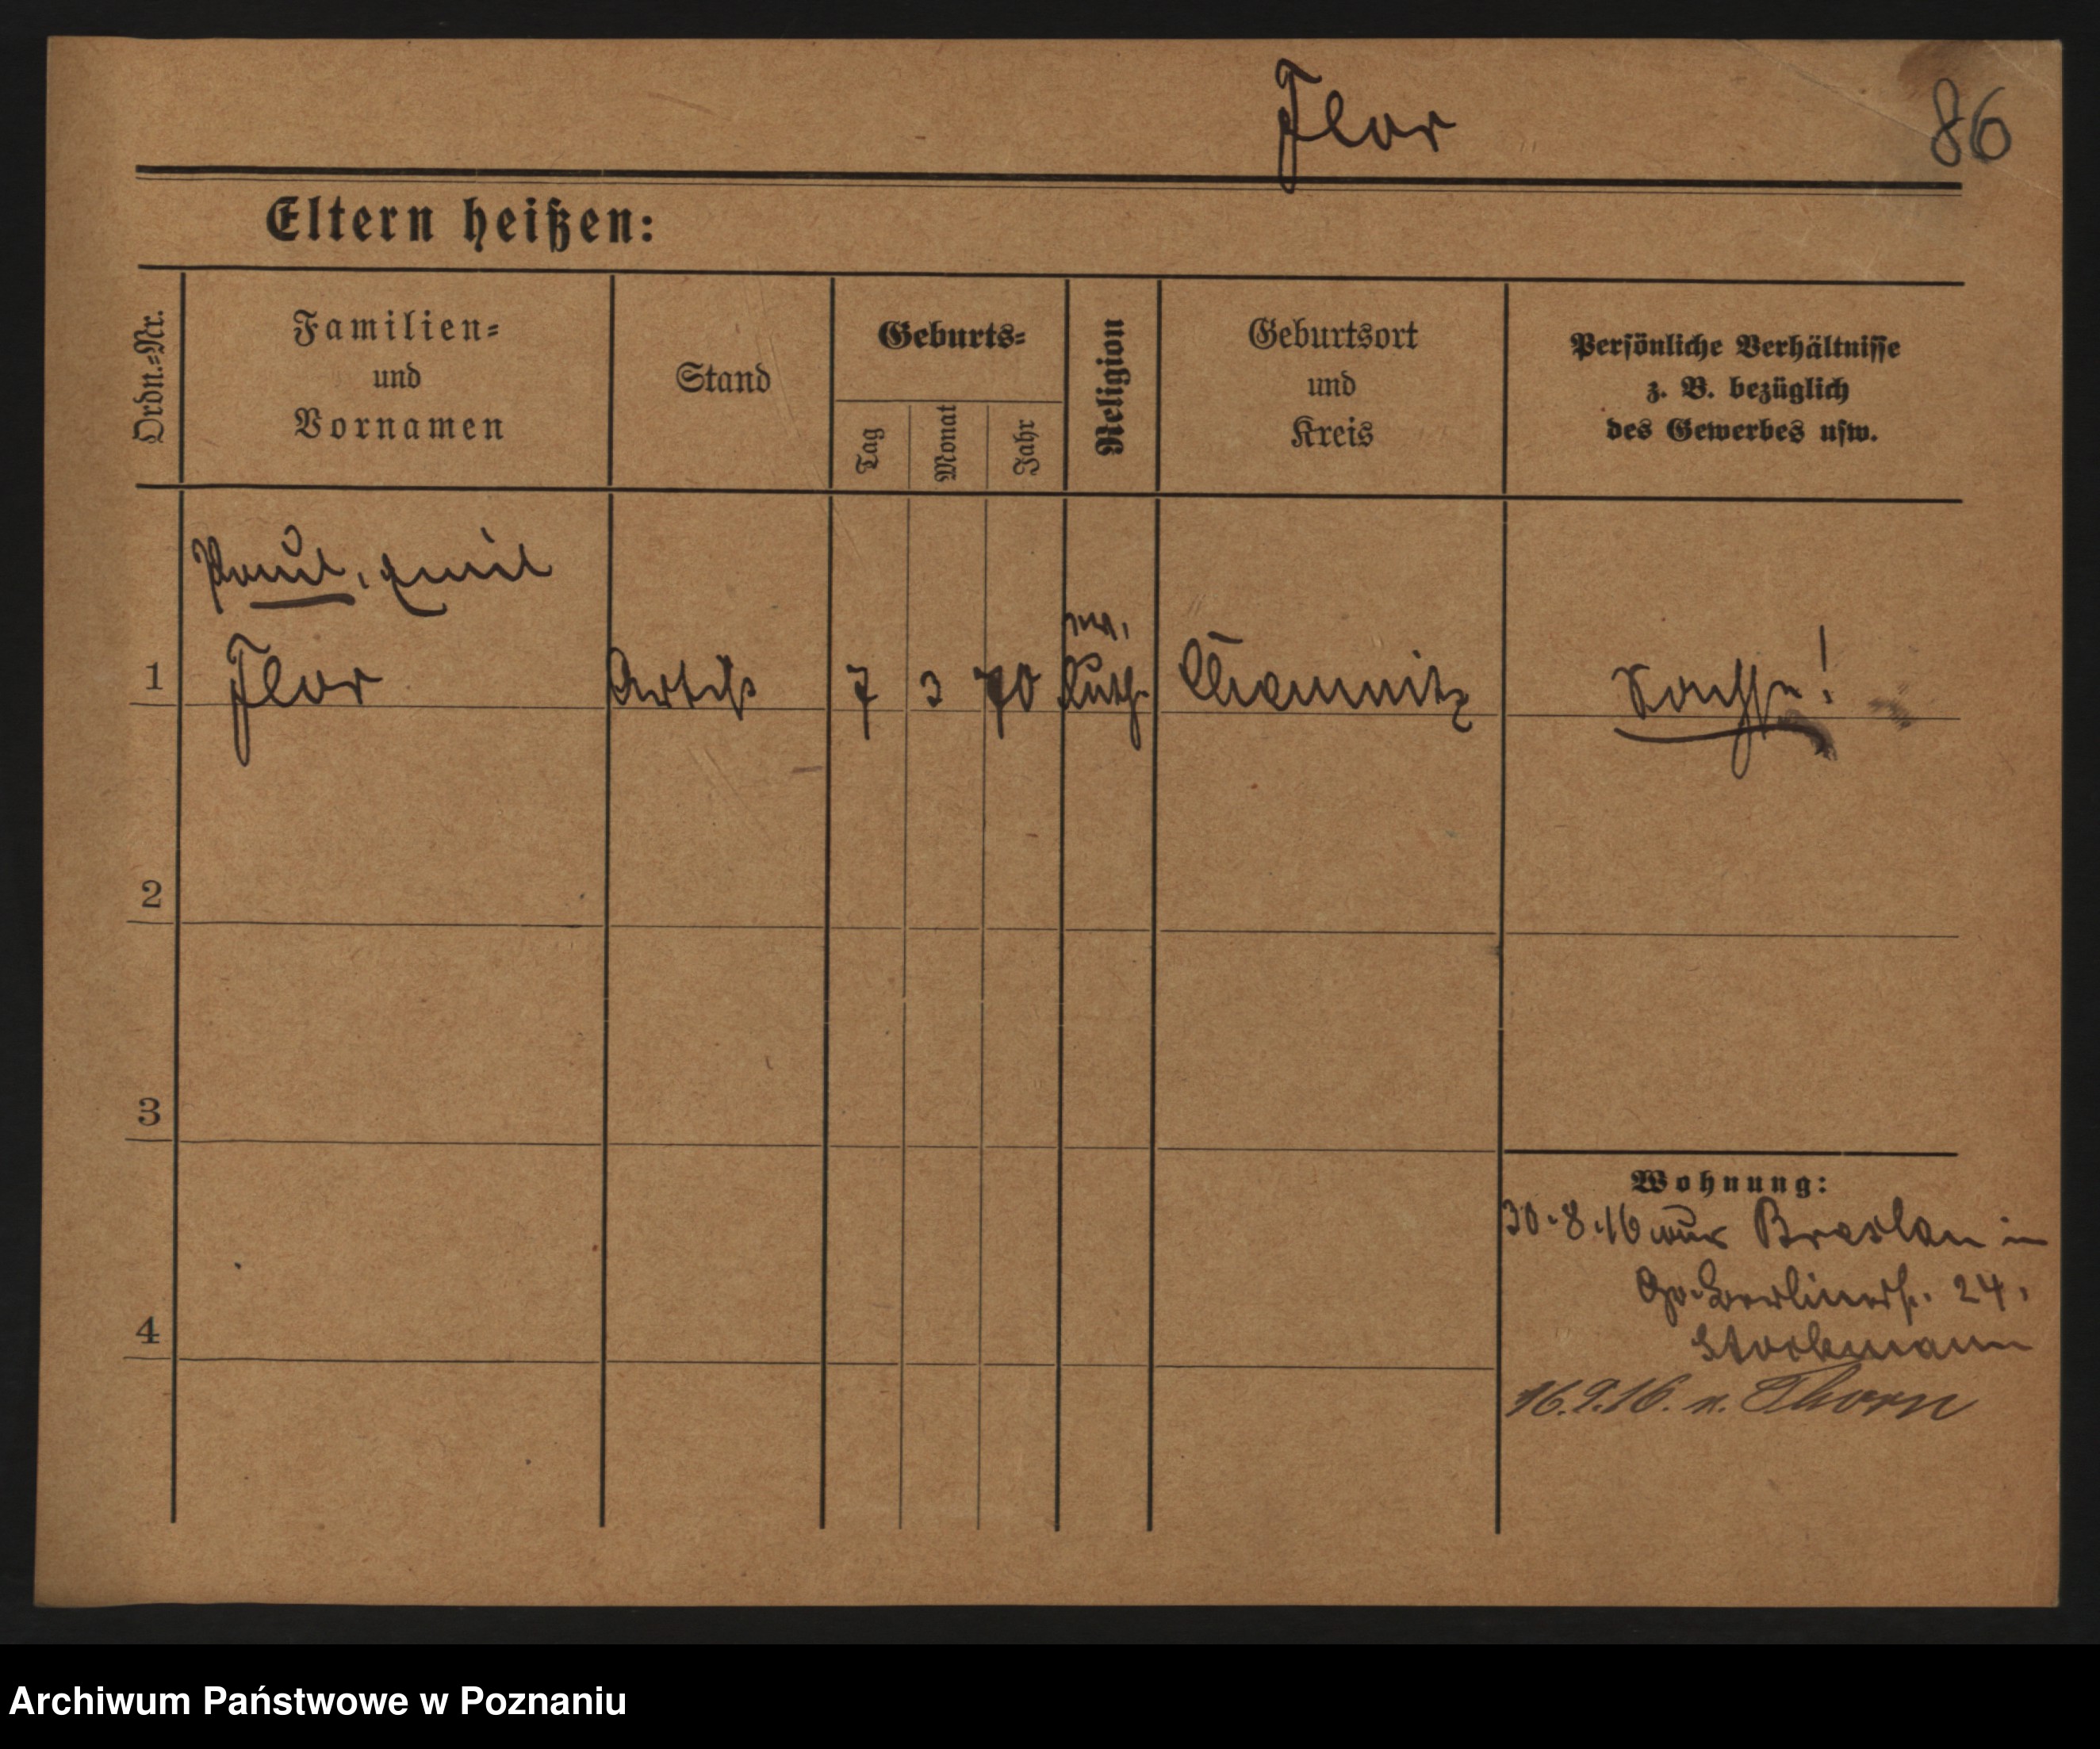 Flor
86
Eltern heißen:
Ordn.=Nr.
Familien=
und
Vornamen
Stand
Geburts=
Tag
Monat
Jahr
Religion
Geburtsort
und
Kreis
Persönliche Verhältnisse
z. B. bezüglich
des Gewerbes usw.
Paul, Emil
1
Flor
Artist
7
3
70
ev.
luth.
Chemnitz
Sachse!
2
3
4
Wohnung:
30.8.16 aus Breslau in
Gr. Berlinerstr. 24.
Stockmann
16.9.16. n. Thorn
Archiwum Państwowe w Poznaniu